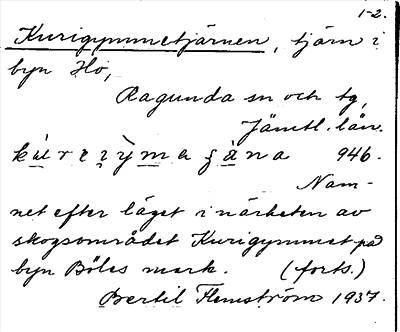 1-2.
Kurigymmetjärnen, tjärn i
byn Ho,
Ragunda sn och tg,
Jämtl. län.
946.
Nam-
net efter läget i närheten av
skogsområdet Kurigymmet på
byn Böles mark. (forts.)
Bertil Flemström 1937.